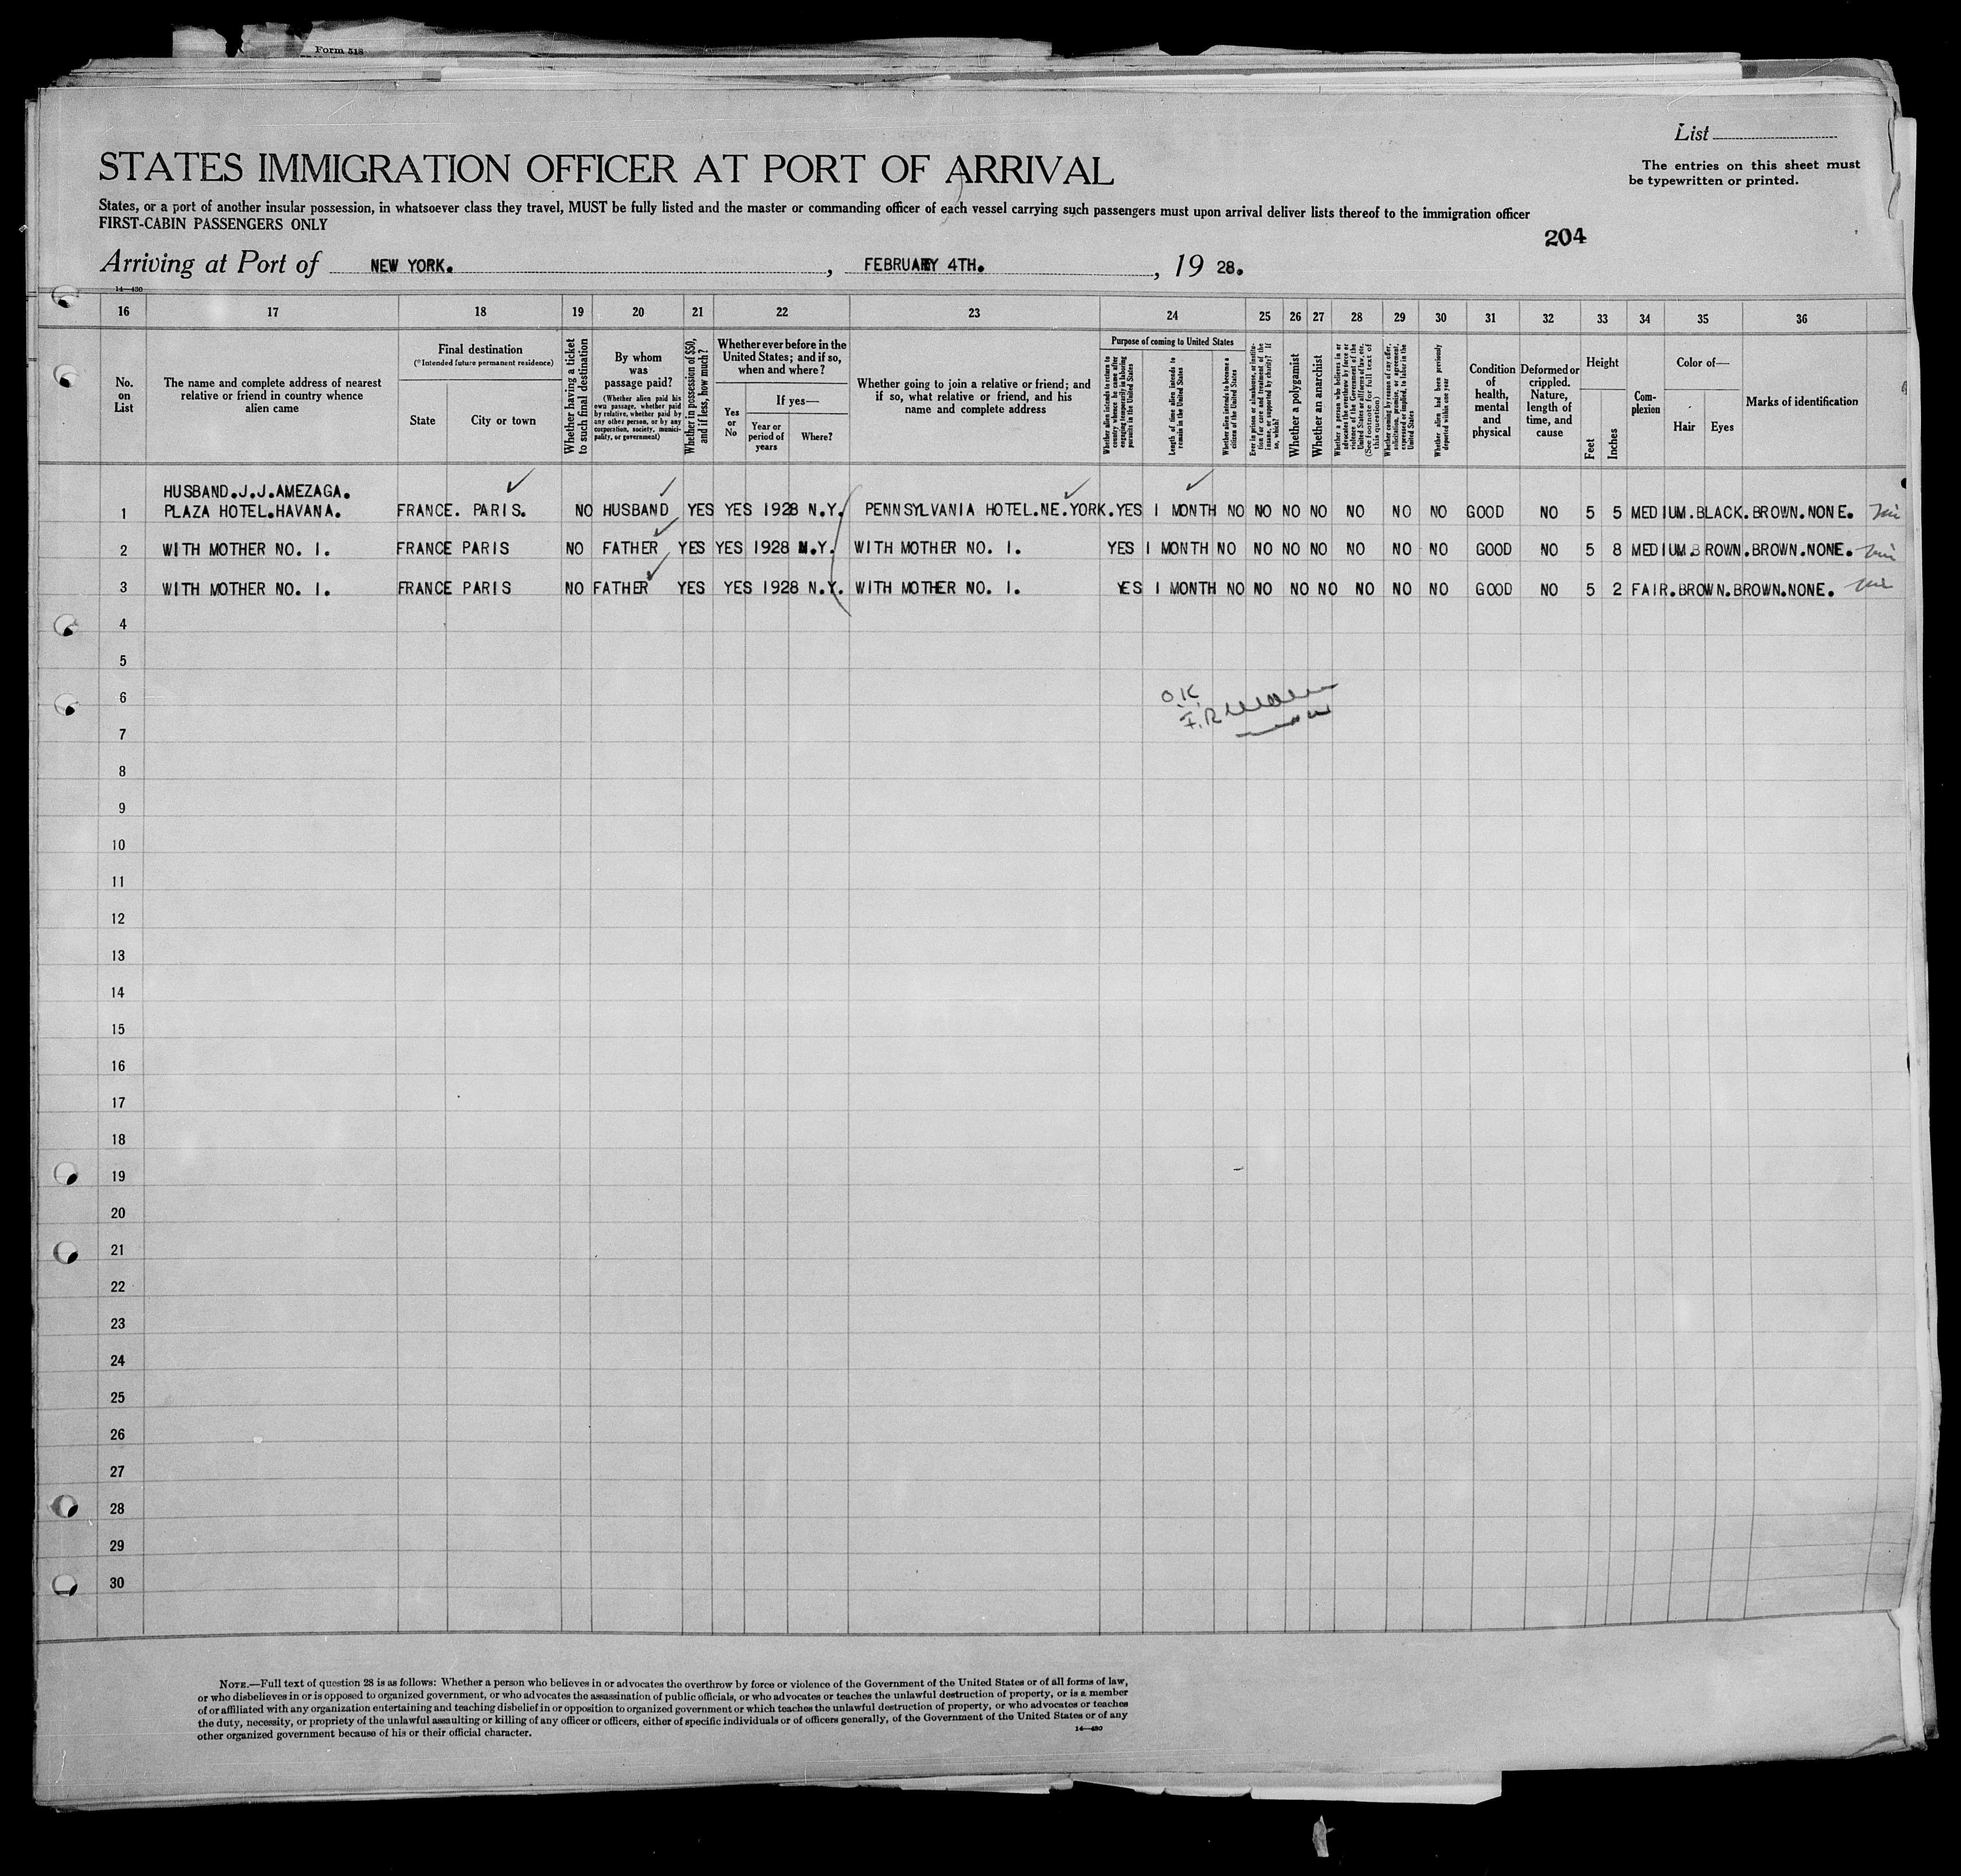 Form 518
List
STATES IMMIGRATION OFFICER AT PORT OF ARRIVAL
The entries on this sheet must
be typewritten or printed.
States, or a port of another insular possession, in whatsoever class they travel, MUST be fully listed and the master or commanding officer of each vessel carrying such passengers must upon arrival deliver lists thereof to the immigration officer
FIRST-CABIN PASSENGERS ONLY
204
Arriving at Port of NEW YORK. , FEBRUARY 4TH. , 19 28.
14—430
16 17 18 19 20 21 22 23 24 25 26 27 28 29 30 31 32 33 34 35 36
No.
on
List
The name and complete address of nearest
relative or friend in country whence
alien came
Final destination
(*Intended future permanent residence)
State
City or town
Whether having a ticket
to such final destination
By whom
was
passage paid?
(Whether alien paid his
own passage, whether paid
by relative, whether paid by
any other person, or by any
corporation, society, munici-
pality, or government)
Whether in possession of $50,
and if less, how much?
Whether ever before in the
United States; and if so,
when and where?
Yes
or
No
If yes—
Year or
period of
years
Where?
Whether going to join a relative or friend; and
if so, what relative or friend, and his
name and complete address
Purpose of coming to United States
Whether alien intends to return to
country whence he came after
engaging temporarily in laboring
pursuits in the United States
Length of time alien intends to
remain in the United States
Whether alien intends to become a
citizen of the United States
Ever in prison or almshouse, or institu-
tion for care and treatment of the
insane, or supported by charity? If
so, which?
Whether a polygamist
Whether an anarchist
Whether a person who believes in or
advocates the overthrow by force or
violence of the Government of the
United States or all forms of law, etc.
(See footnote for full text of
this question)
Whether coming by reason of any offer,
solicitation, promise, or agreement,
expressed or implied, to labor in the
United States
Whether alien had been previously
deported within one year
Condition
of
health,
mental
and
physical
Deformed or
crippled.
Nature,
length of
time, and
cause
Height
Feet
Inches
Com-
plexion
Color of—
Hair
Eyes
Marks of identification
HUSBAND.J.J.AMEZAGA.
1 PLAZA HOTEL.HAVANA. FRANCE. PARIS. NO HUSBAND YES YES 1928 N.Y. PENNSYLVANIA HOTEL.NE.YORK. YES 1 MONTH NO NO NO NO NO NO NO GOOD NO 5 5 MEDIUM.BLACK.BROWN.NONE.
2 WITH MOTHER NO. 1. FRANCE PARIS NO FATHER YES YES 1928 N.Y. WITH MOTHER NO. 1. YES 1 MONTH NO NO NO NO NO NO NO GOOD NO 5 8 MEDIUM.BROWN.BROWN.NONE.
3 WITH MOTHER NO. 1. FRANCE PARIS NO FATHER YES YES 1928 N.Y. WITH MOTHER NO. 1. YES 1 MONTH NO NO NO NO NO NO NO GOOD NO 5 2 FAIR.BROWN.BROWN.NONE.
4
5
6
O.K.
7
8
9
10
11
12
13
14
15
16
17
18
19
20
21
22
23
24
25
26
27
28
29
30
NOTE.—Full text of question 28 is as follows: Whether a person who believes in or advocates the overthrow by force or violence of the Government of the United States or of all forms of law,
or who disbelieves in or is opposed to organized government, or who advocates the assassination of public officials, or who advocates or teaches the unlawful destruction of property, or is a member
of or affiliated with any organization entertaining and teaching disbelief in or opposition to organized government or which teaches the unlawful destruction of property, or who advocates or teaches
the duty, necessity, or propriety of the unlawful assaulting or killing of any officer or officers, either of specific individuals or of officers generally, of the Government of the United States or of any
other organized government because of his or their official character.
14—430